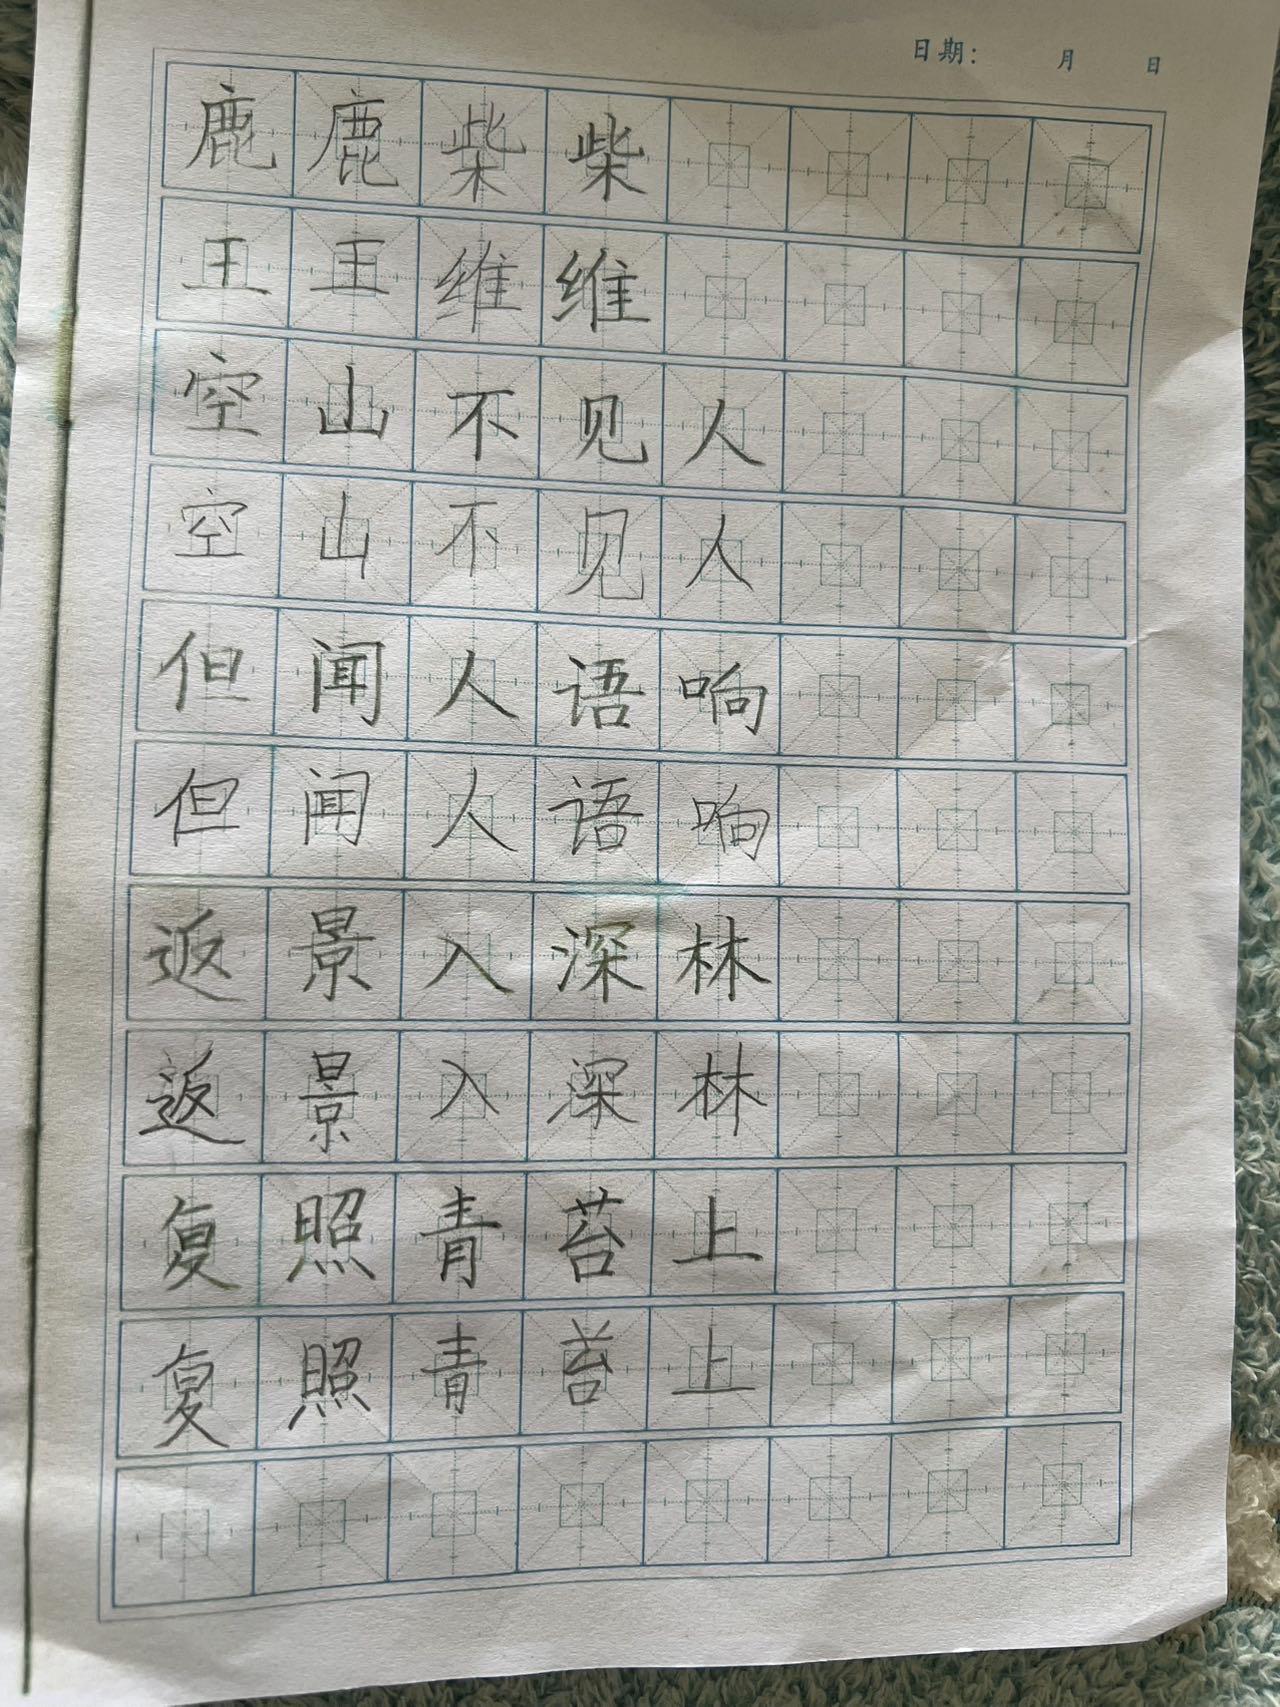 日期： 月 日
鹿鹿柴柴
王王维维
空山不见人
空山不见人
但闻人语响
但闻人语响
返景入深林
返景入深林
复照青苔上
复照青苔上